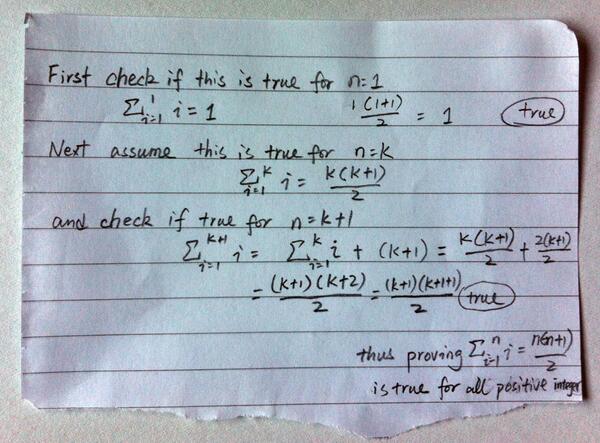 First check if this is true for n=1
∑_{i=1}^{1} i = 1    1(1+1)/2 = 1    true
Next assume this is true for n=k
∑_{i=1}^{k} i = k(k+1)/2
and check if true for n=k+1
∑_{i=1}^{k+1} i = ∑_{i=1}^{k} i + (k+1) = k(k+1)/2 + 2(k+1)/2
= (k+1)(k+2)/2 = (k+1)(k+1+1)/2    true
thus proving ∑_{i=1}^{n} i = n(n+1)/2
is true for all positive integer